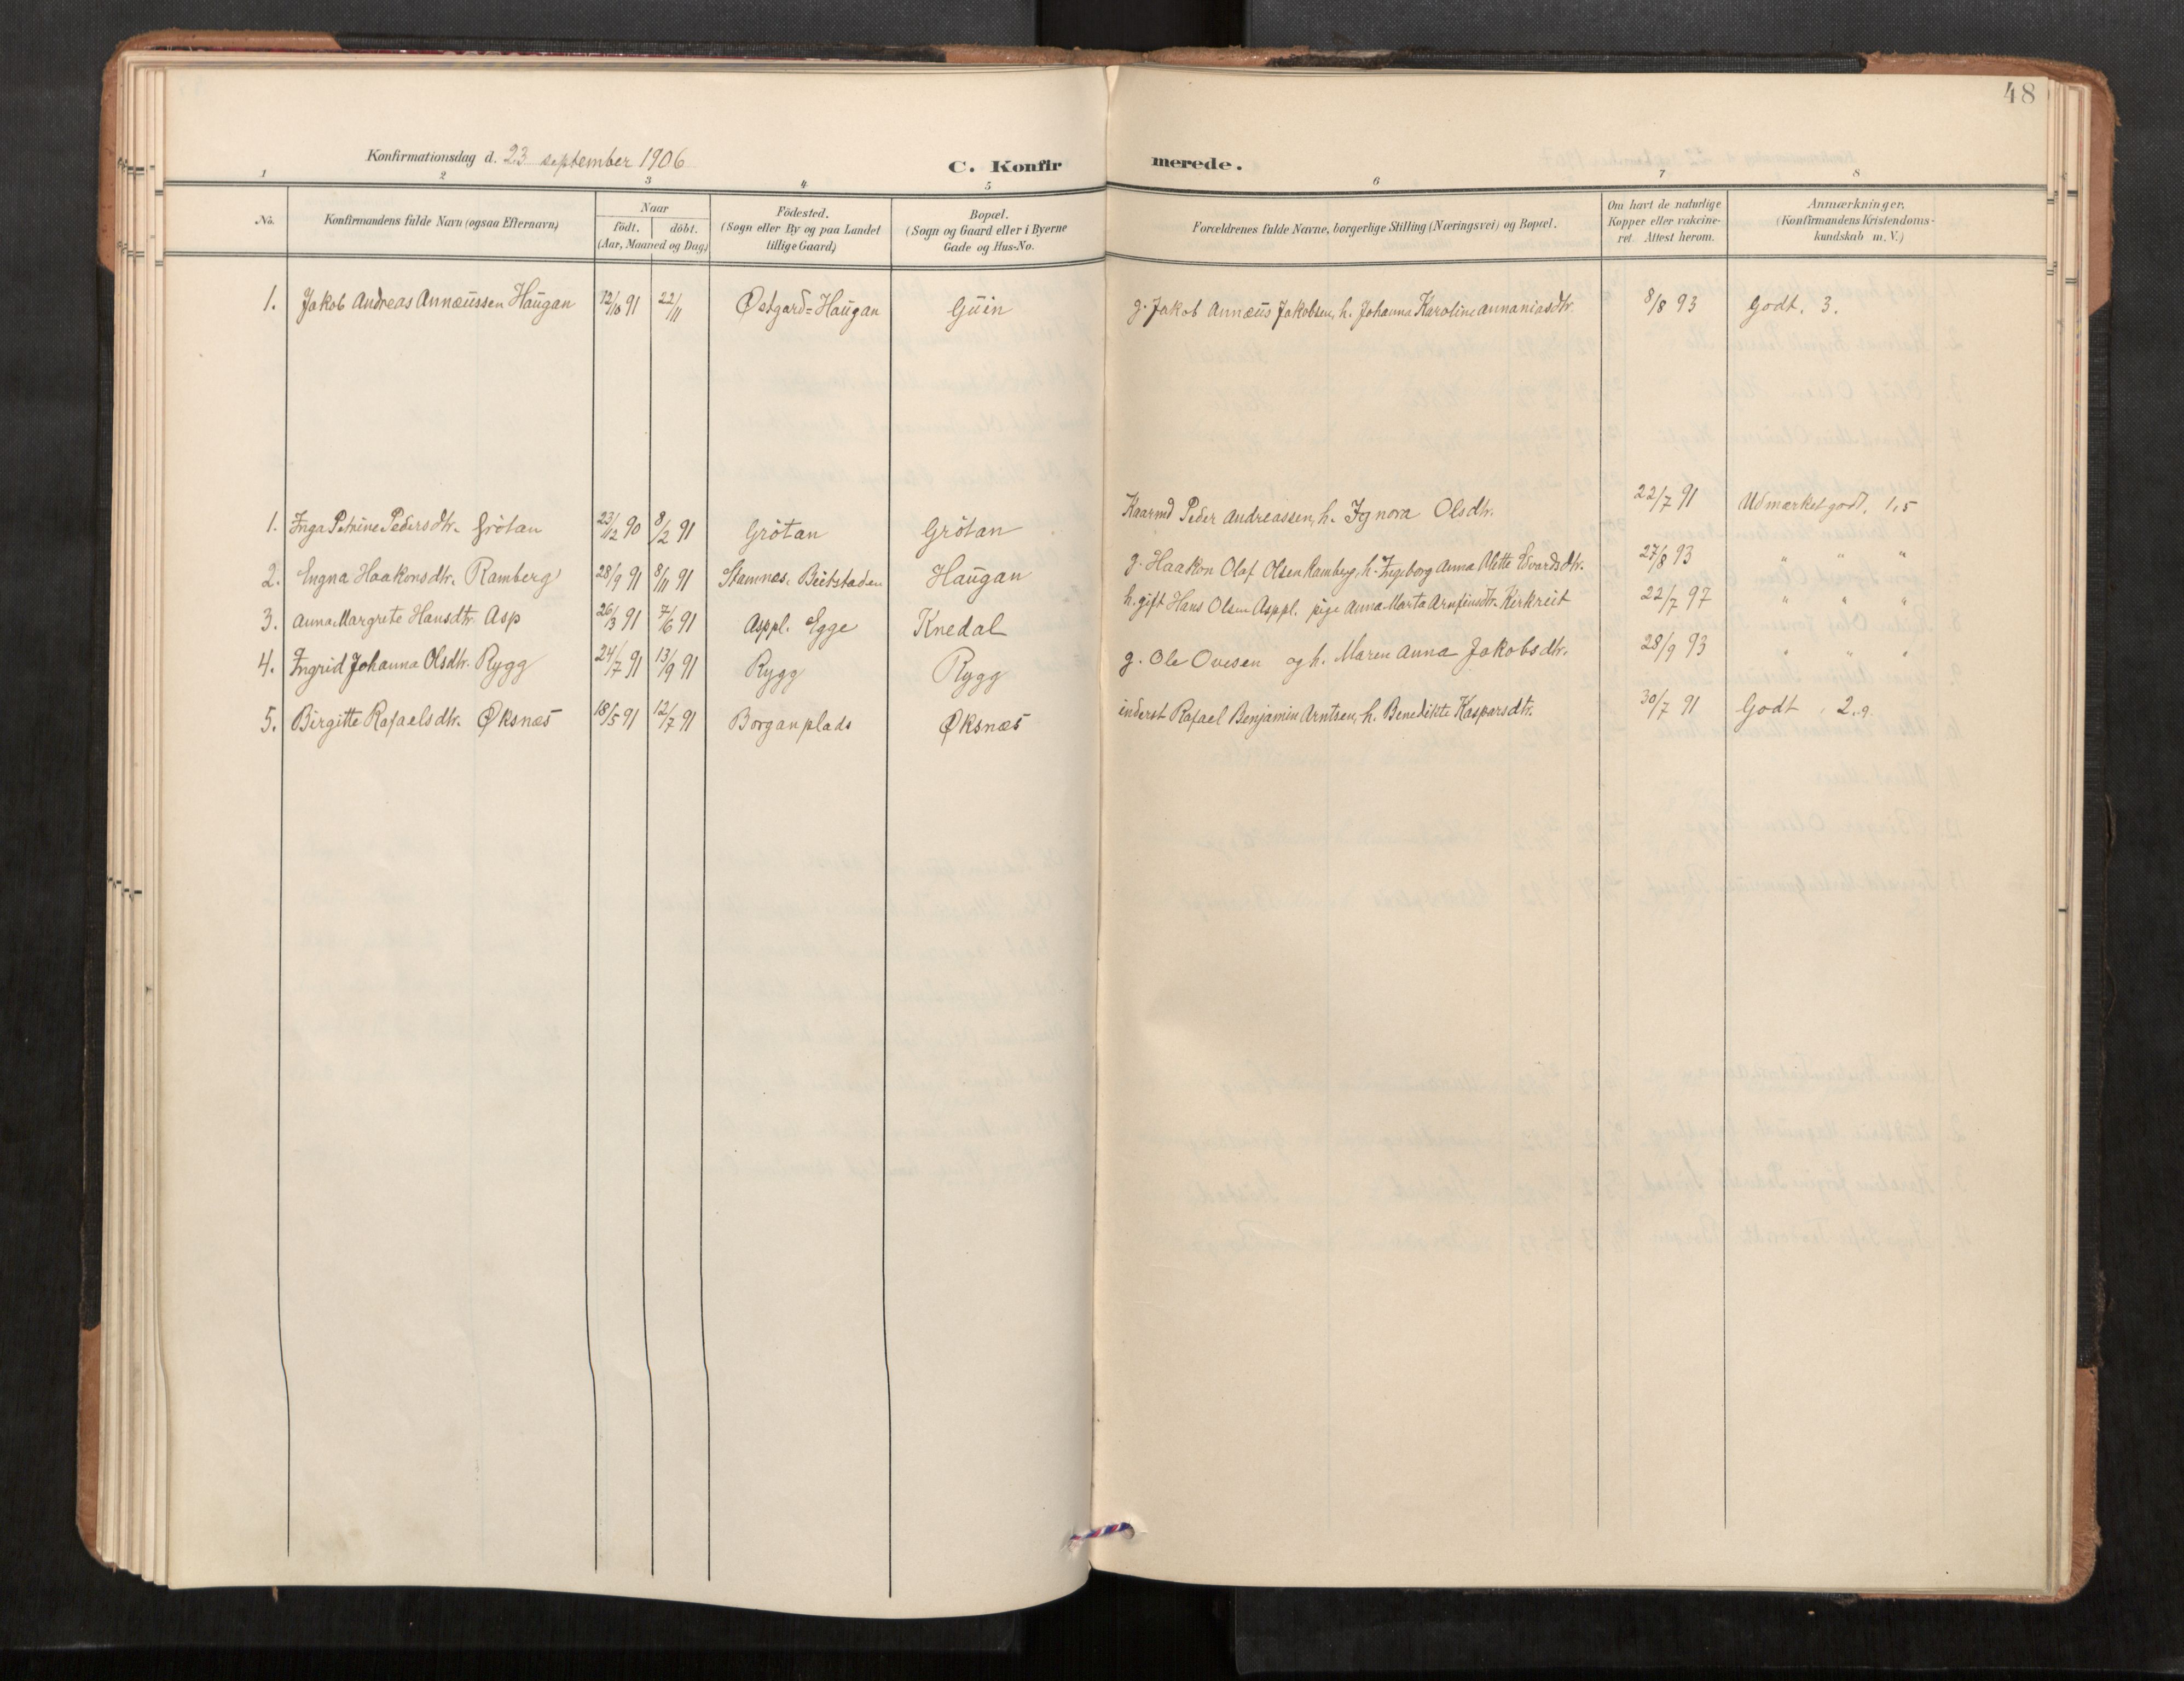 48
Konfirmationsdag d. 23 september 1906
C. Konfirmerede.
1 2 3 4 5 6 7 8
No. Konfirmandens fulde Navn (ogsaa Efternavn) Naar födt. döbt. (Aar, Maaned og Dag) Födested. (Sogn eller By og paa Landet tillige Gaard) Bopæl. (Sogn og Gaard eller i Byerne Gade og Hus-No. Forældrenes fulde Navne, borgerlige Stilling (Næringsvei) og Bopæl. Om havt de naturlige Kopper eller vakcineret. Attest herom. Anmærkninger. (Konfirmandens Kristendomskundskab m. V.)
1. Jakob Andreas Annæussen Haugan 12/10 91 22/11 Østgard=Haugan Guin g. Jakob Annæus Jakobsen, h. Johanna Karoline Annaniasdtr. 8/8 93 Godt. 3.
1. Inga Petrine Pedersdtr. Grötan 23/12 90 8/2 91 Grötan Grötan Kaarmd Peder Andreassen, h. Ignora Olsdtr. 22/7 91 Udmærket godt. 1,5
2. Engna Haakonsdtr. Ramberg 28/9 91 8/11 91 Stamnes. Beitstaden Haugan g. Haakon Olaf Olsen Ramberg, h. Ingeborg Anna Alette Evardsdtr. 27/8 93 " " "
3. Anna Margrete Hansdtr. Asp 26/3 91 7/6 91 Asppl. Egge Knedal h. gift Hans Olsen Asppl. pige Anna Marta Arnfinsdtr. Kirkreit 22/7 97 " " "
4. Ingrid Johanna Olsdtr. Rygg 24/7 91 13/9 91 Rygg Rygg g. Ole Ovesen og h. Maren Anna Jakobsdtr. 28/9 93 " " "
5. Birgitte Rafaelsdtr. Øksnæs 18/5 91 12/7 91 Borganplads Øksnæs inderst Rafael Benjamin Arntsen, h. Benedikte Kaspersdtr. 30/7 91 Godt, 2.9